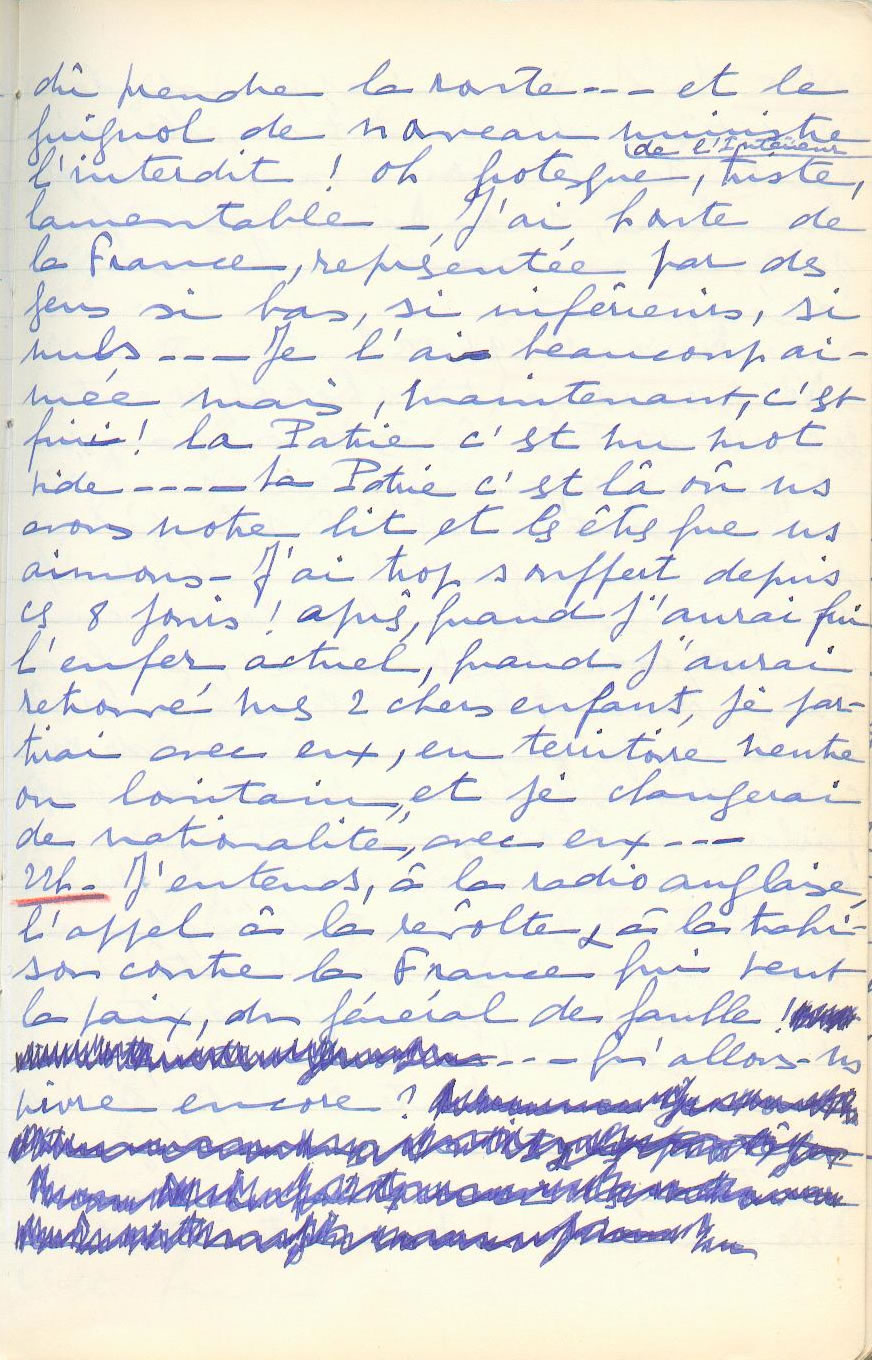 dû prendre la route --- et le
guignol de nouveau ministre
de l'Intérieur
l'interdit ! oh grotesque, triste,
lamentable - J'ai honte de
la France, représentée par des
gens si bas, si inférieurs, si
nuls --- Je l'ai beaucoup ai-
mée mais, maintenant, c'est
fini ! la Patrie c'est un mot
vide ---- la Patrie c'est là où ns
avons notre lit et ls êtrs que ns
aimons - J'ai trop souffert depuis
cs 8 jours ! après, quand j'aurai fui
l'enfer actuel, quand j'aurai
retrouvé mes 2 chers enfants, je par-
tirai avec eux, en territoire neutre
ou lointain, et je changerai
de nationalité, avec eux ---
22h - J'entends, à la radio anglaise,
l'appel à la révolte, & à la trahi-
son contre la France qui veut
la paix, du général de Gaulle !
--- Qu'allons-ns
vivre encore ?